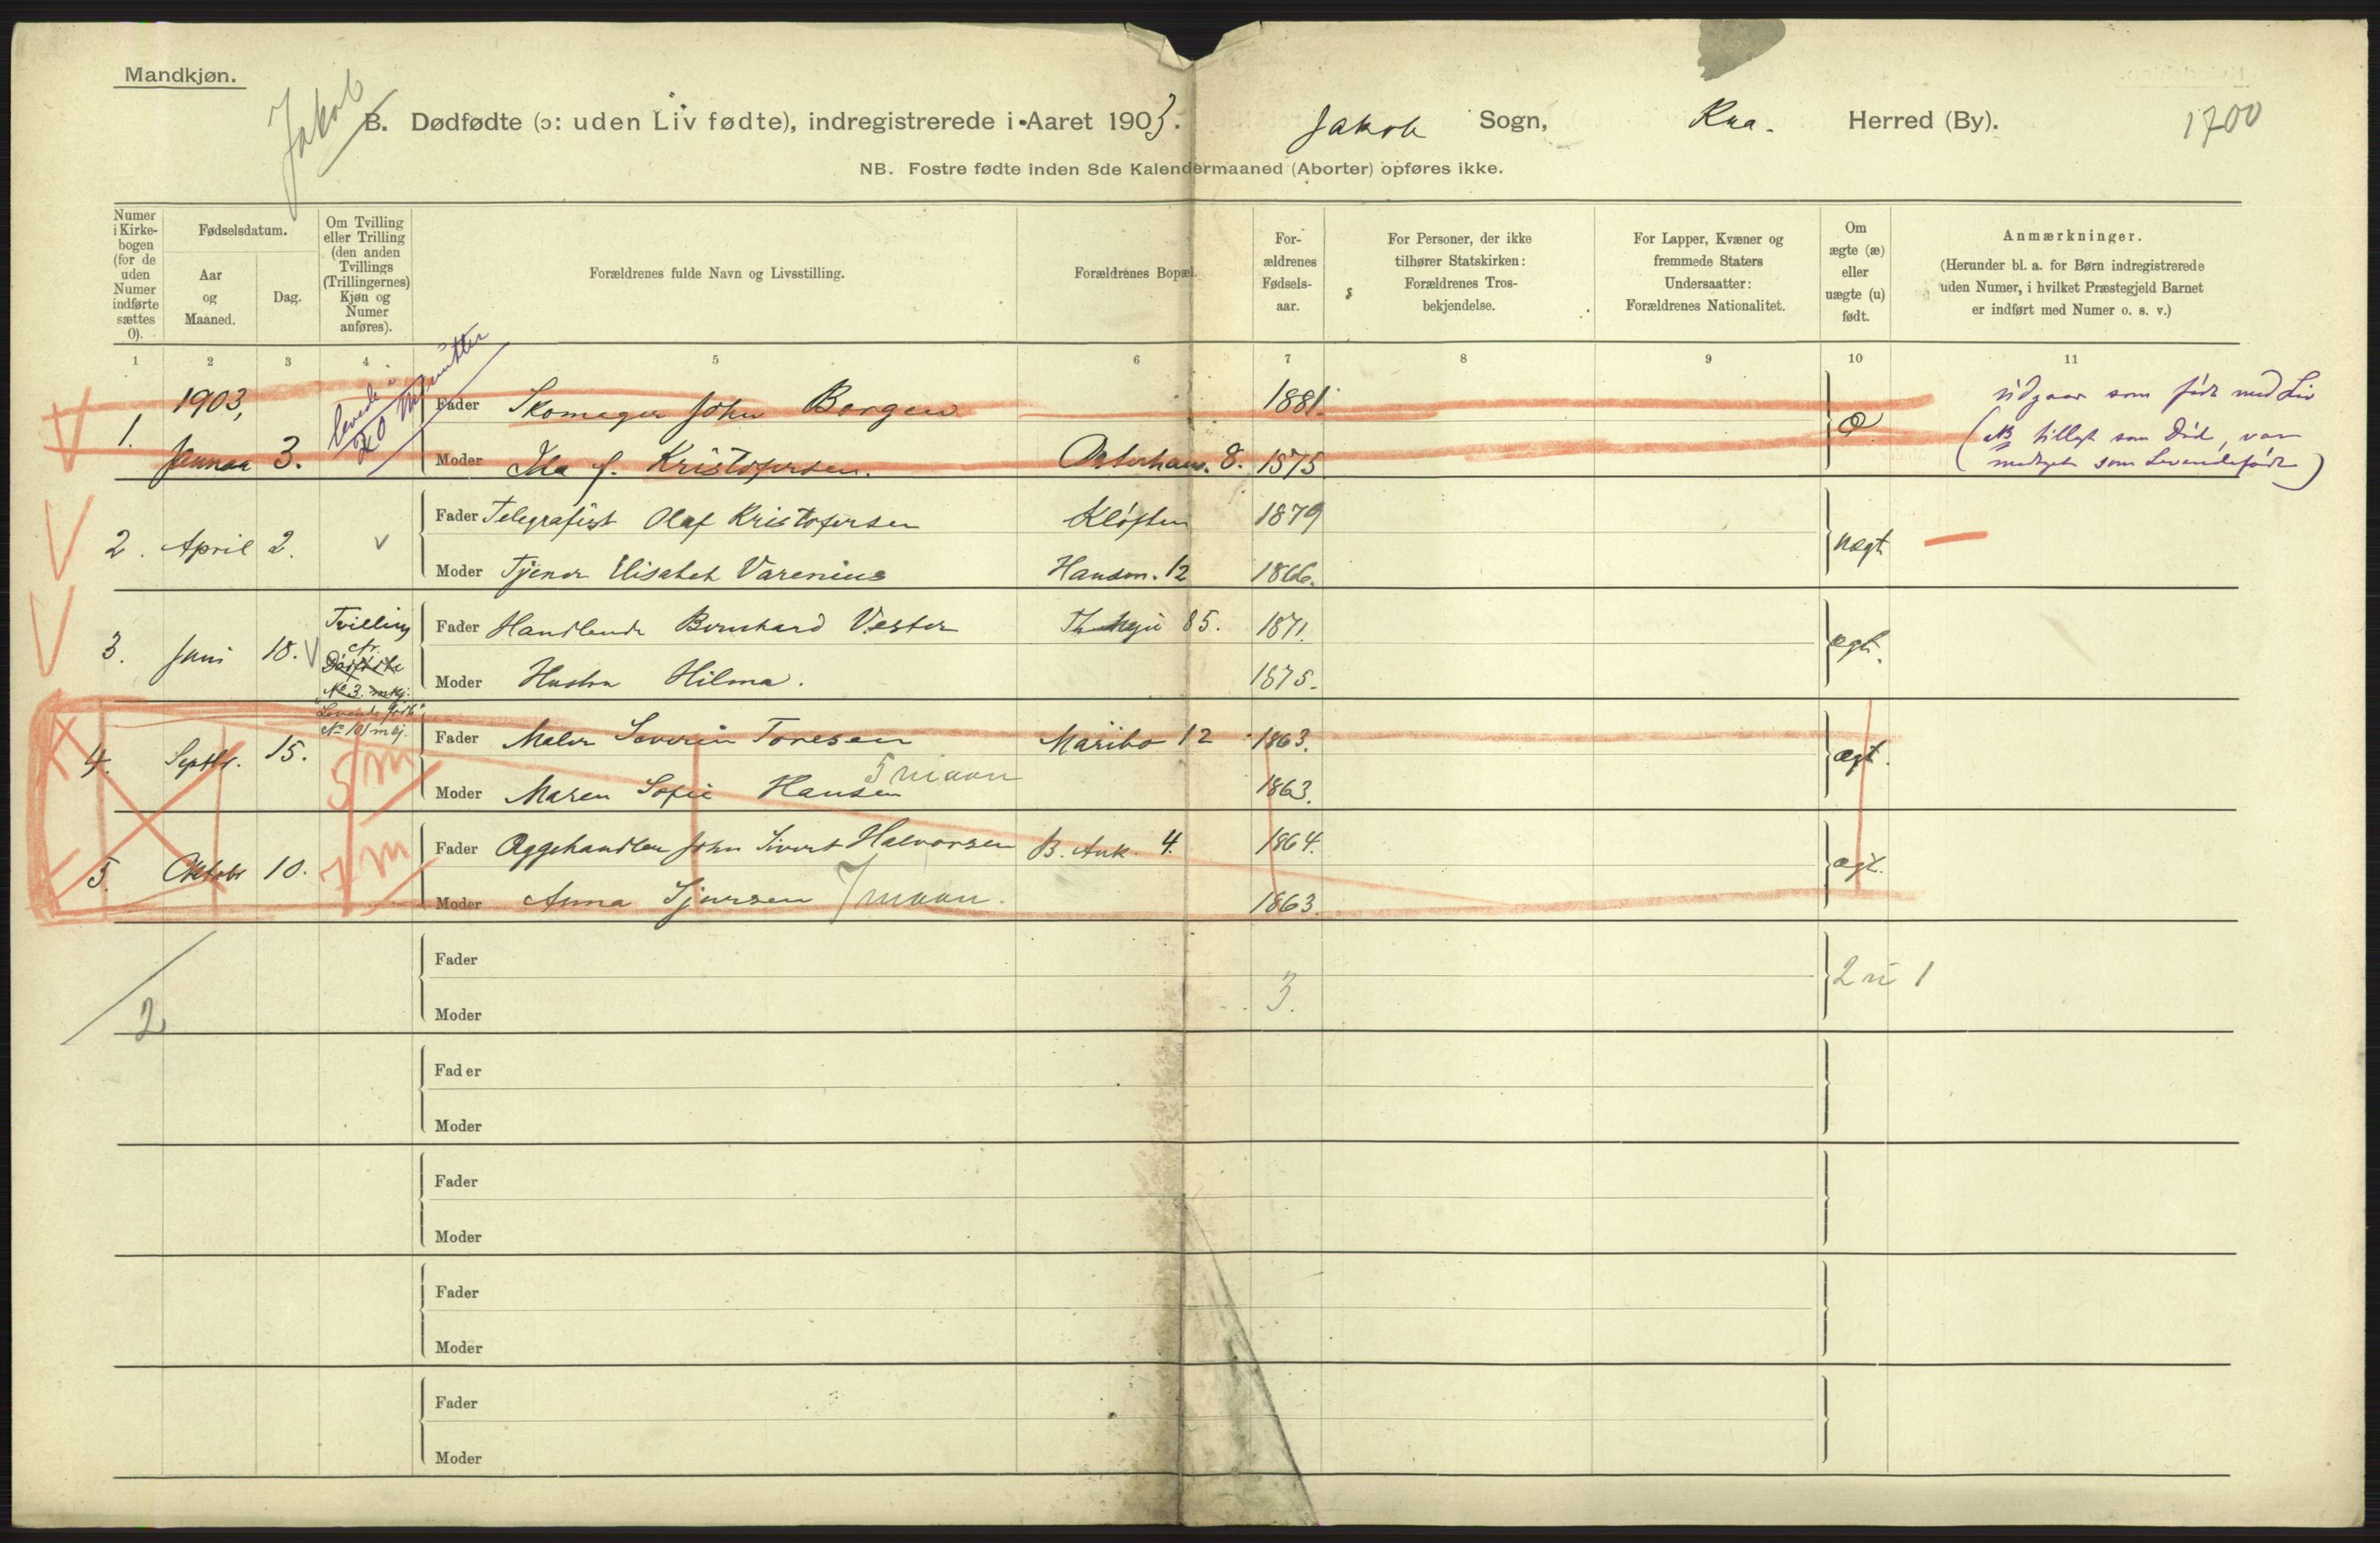 Mandkjøn.
Jakob
B. Dødfødte (ɔ: uden Liv fødte), indregistrerede i Aaret 1903.
Jakob Sogn, Kra. Herred (By).
1700
NB. Fostre fødte inden 8de Kalendermaaned (Aborter) opføres ikke.
Numer i Kirke-bogen (for de uden Numer indførte sættes 0).
Fødselsdatum.
Aar og Maaned.
Dag.
Om Tvilling eller Trilling (den anden Tvillings (Trillingernes) Kjøn og Numer anføres).
Forældrenes fulde Navn og Livsstilling.
Forældrenes Bopæl.
For-ældrenes Fødsels-aar.
For Personer, der ikke tilhører Statskirken: Forældrenes Tros-bekjendelse.
For Lapper, Kvæner og fremmede Staters Undersaatter: Forældrenes Nationalitet.
Om ægte (æ) eller uægte (u) født.
Anmærkninger.
(Herunder bl. a. for Børn indregistrerede uden Numer, i hvilket Præstegjeld Barnet er indført med Numer o. s. v.)
1 2 3 4 5 6 7 8 9 10 11
1903,
levede i 20 Minutter
Fader Skomager John Borgen 1881.
1. Januar 3.
Moder Ida f. Kristofersen. Osterhaus. 8. 1875
udgaar som født med Liv
(NB tillagt som Død, var
medtaget som Levendefødt)
Fader Telegrafist Olaf Kristofersen Kløften 1879
2. April 2. v uægt
Moder Tjener Elisabet Varenius Hausm. 12 1866.
Tvilling
Fader Handlende Bernhard Vester Th. Meyer 85. 1871.
3. Juni 18. v cfr. Dødfødte ægt.
No 3. mkj.
Moder Hustru Hilma. 1875.
Levende født
No 101 mkj.
Fader Maler Severin Toresen Maribo 12 1863.
4. Septbr. 15. 5 m ægt.
5 maan
Moder Maren Sofie Hansen 1863.
Fader Æggehandler John Sivert Halvorsen B. Ank. 4. 1864.
5. Oktobr 10. 7 m ægt.
Moder Anna Sjursen 7 maan. 1863.
Fader
2 3. 2 u 1
Moder
Fader
Moder
Fader
Moder
Fader
Moder
Fader
Moder